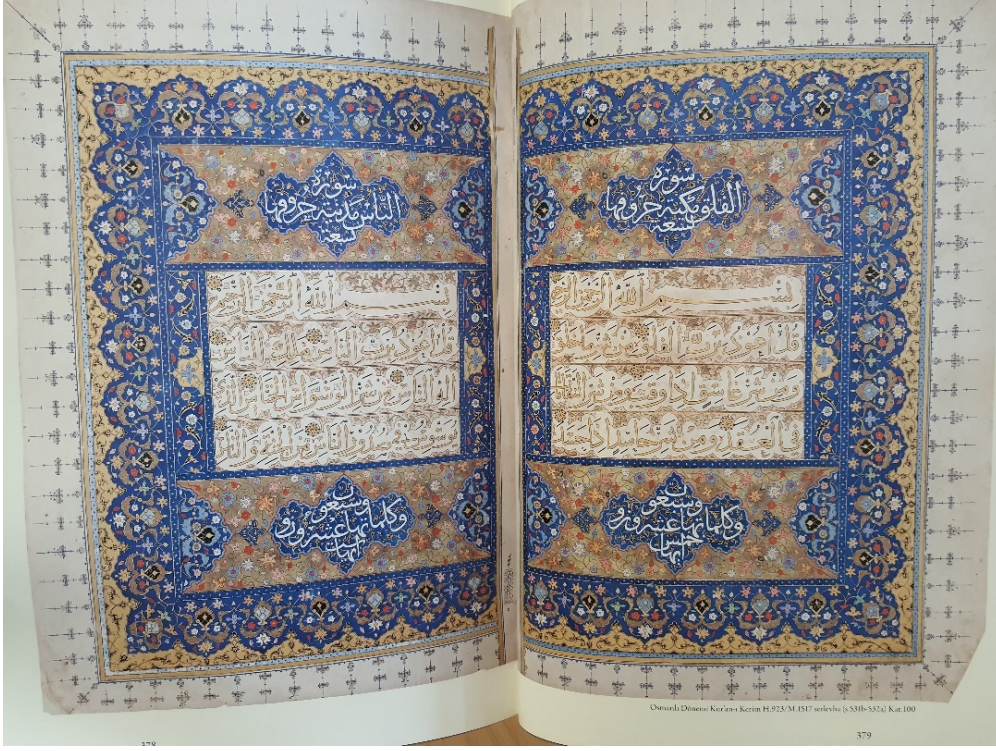 سورة
الفلق مكية حروفها
تسعة
بسم الله الرحمن الرحيم
قل اعوذ برب الفلق من شر ما خلق
ومن شر غاسق اذا وقب ومن شر النفاثات
في العقد ومن شر حاسد اذا حسد
وسبعون
وكلماتها عشرون و
خمس
سورة
الناس مدنية حروفها
تسعة
بسم الله الرحمن الرحيم
قل اعوذ برب الناس ملك الناس
اله الناس من شر الوسواس الخناس الذي
يوسوس في صدور الناس من الجنة والناس
وسبعون
وكلماتها عشرون و
Osmanlı Dönemi Kur'an-ı Kerim H.923/M.1517 serlevha (s.531b-532a) Kat.100
378
379